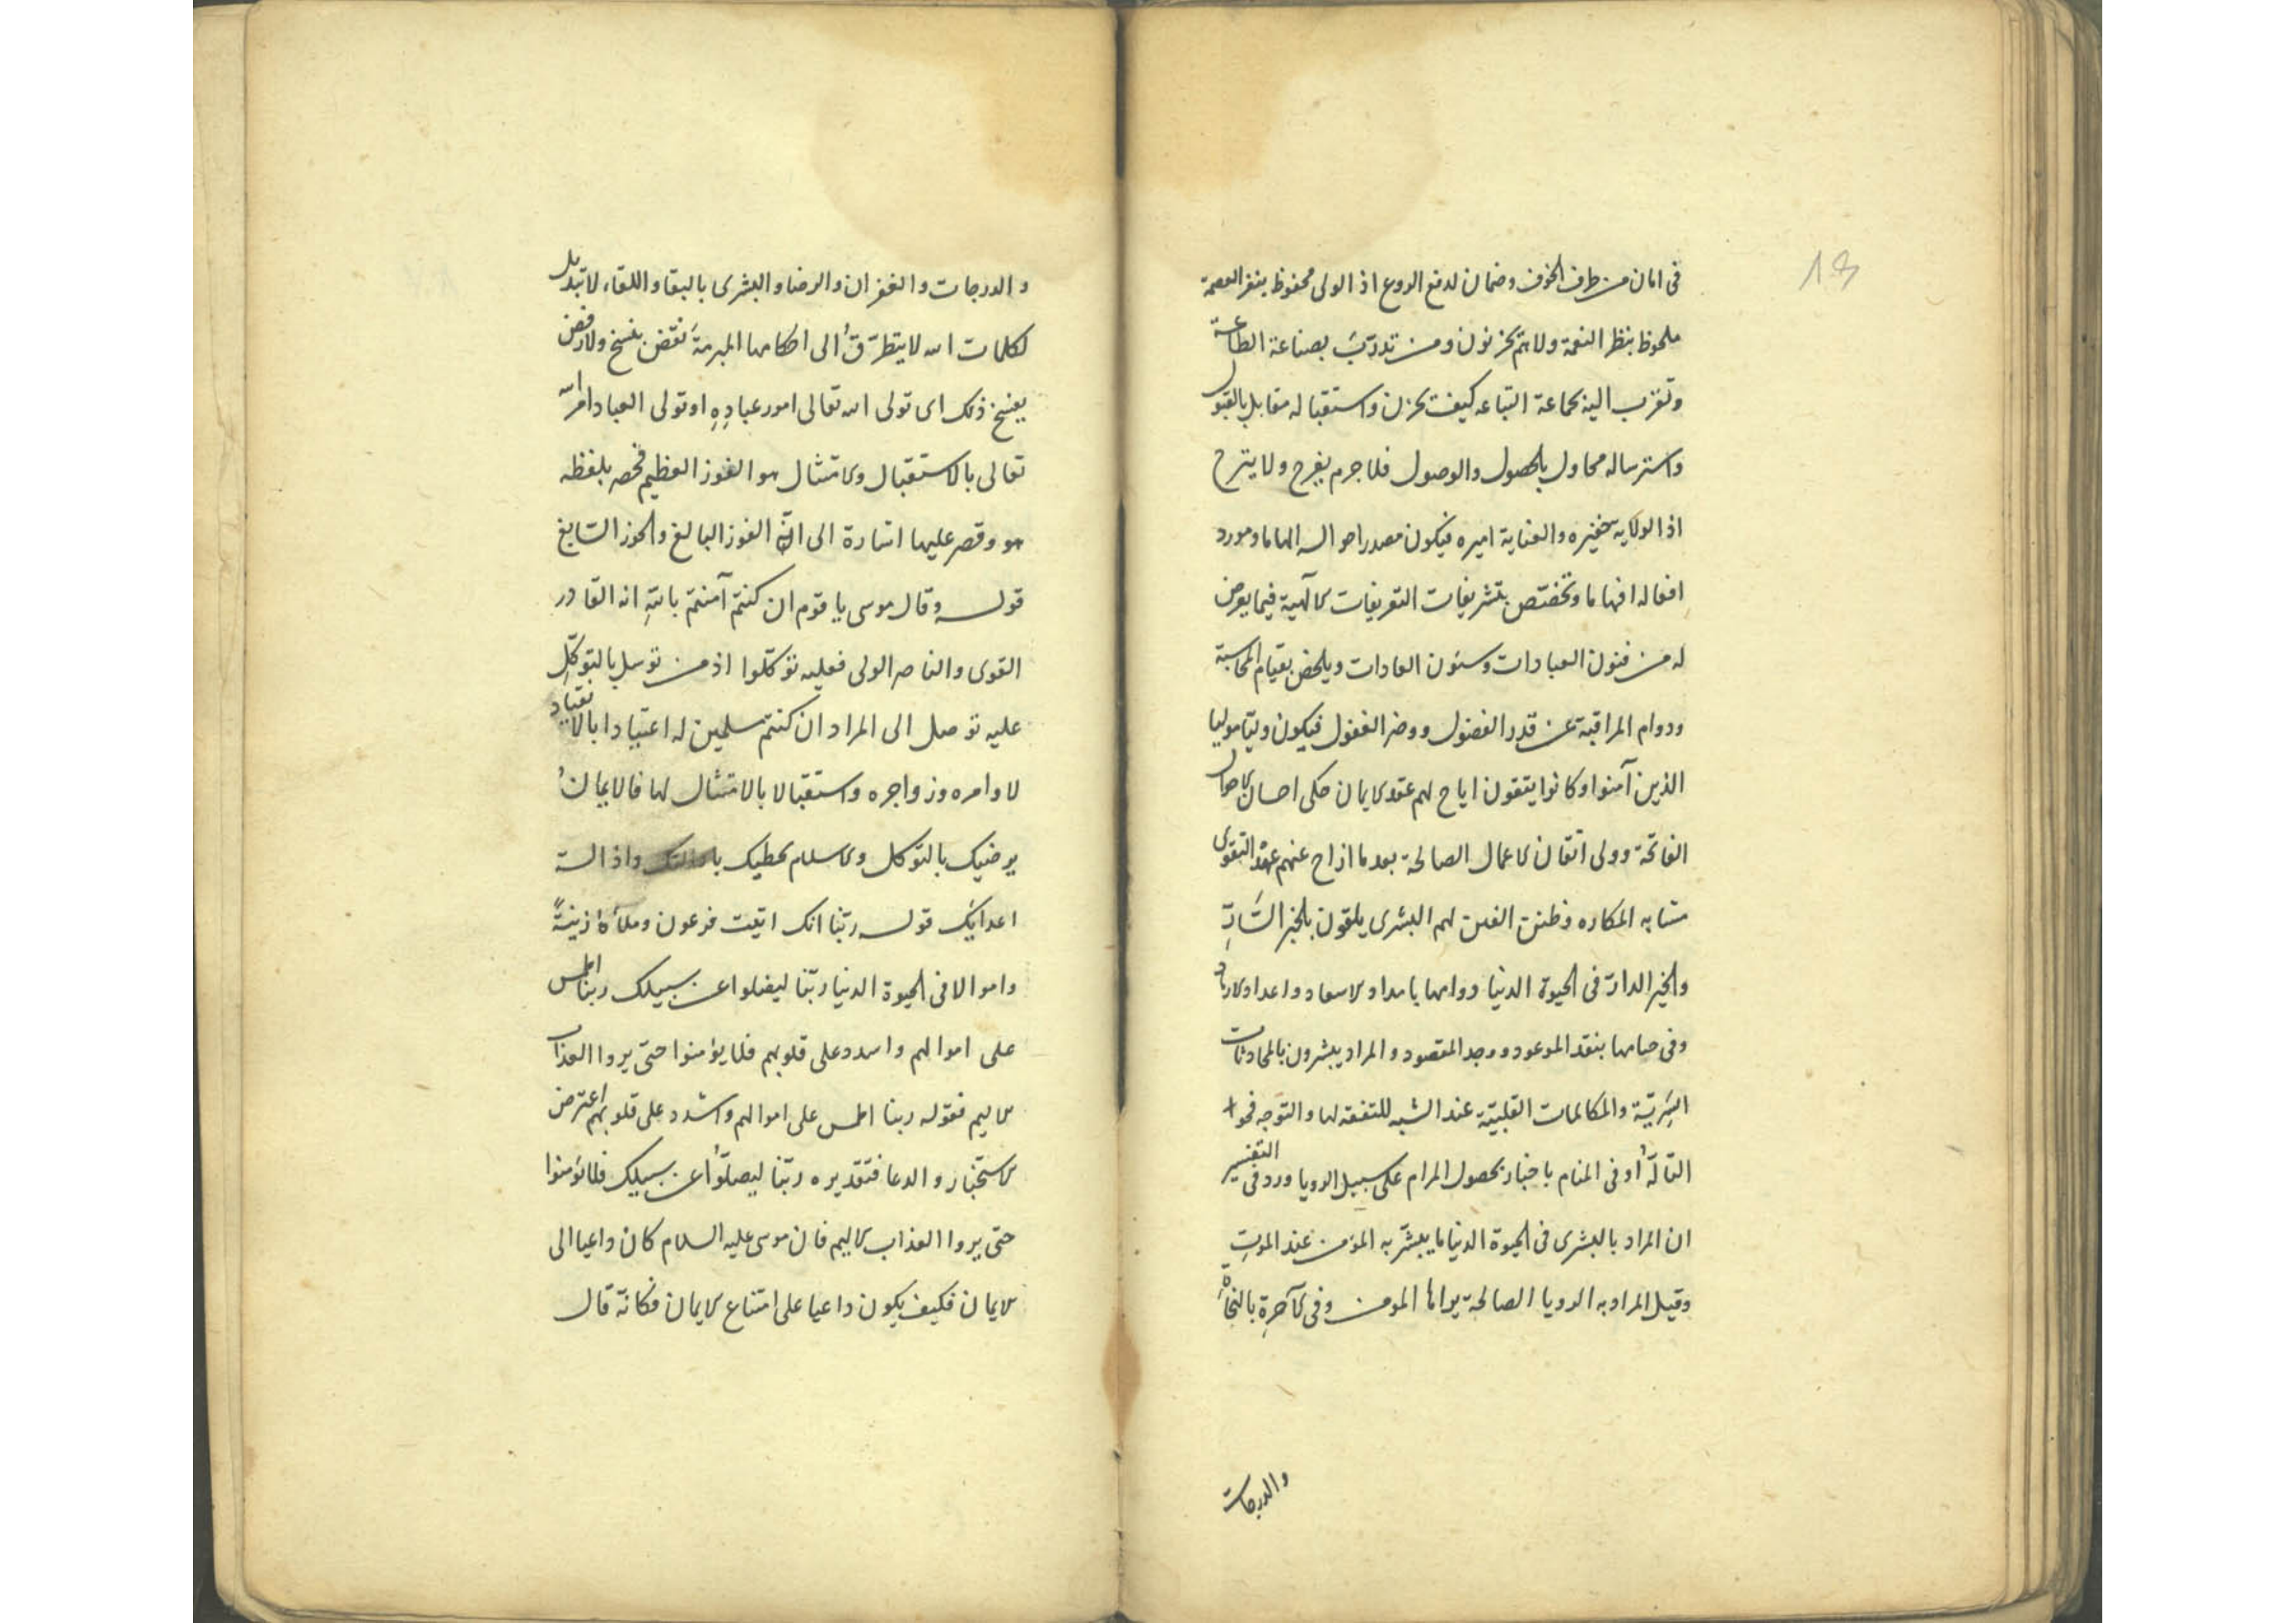 13
فى امان من طرف الخوف وضمان لدفع الروع اذ الولى محفوظ بنفر العصمة
ملحوظ بنظر النعمة ولا هم يحزنون ومن تدرّب بصناعة الطاعة
وتقرب اليه بجماعة التباعه كيف يحزن واستقباله مقابل بالقبول
واسترساله محاول بالحصول والوصول فلا جرم يفرح ولا يترح
اذ الولاية خفيره والعناية اميره فيكون مصدر احواله الهاما ومورد
افعاله افهاما وتختص بتشريفات التعريفات الآلهية فيما يعرض
له من فنون العبادات وسنون العادات ويلحض بقيام المحاسبة
ودوام المراقبة عن قدر الفضول ووضر الغفول فيكون وليّا موليا
الذين آمنوا وكانوا يتقون اياح لهم عقد الايمان حلى احسان الاحوال
الفاتحة وولى اتقان الاعمال الصالحة بعد ما ازاح عنهم عهد التقوى
متشابه المكاره وظنن الفتن لهم البشرى يلقون بالخبر السّارّ
والخير الدارّ فى الحيوة الدنيا ودوامها بامداد الاسعاد واعداد الارشاد
وفى ختامها بنقد الموعود ووجد المقصود والمراد يبشرون بالمحادثات
السّريّة والمكالمات القلبيّة عند الشبه للتفقه لها والتوجه نحو
التالّه او فى المنام باخبار بحصول المرام على سبيل الرويا ورد فى التفسير
ان المراد بالبشرى فى الحيوة الدنيا ما يبشّر به المؤمن عند الموت
وقيل المراد به الرويا الصالحة يراها المومن وفى الآخرة بالنجاة
والدرجات
والدرجات والغفران والرضا والبشرى بالبقا واللقاء لا تبديل
لكلمات الله لا يتطرّق الى احكامها المبرمة نقض بفسخ ولا رفض
يفسخ ذلك اى تولى الله تعالى امور عباده او تولى العباد امر الله
تعالى بالاستقبال والامتثال هو الفوز العظيم فخصه بلفظه
هو وقصر عليها اشارة الى انّه الفوز البالغ والحوز السابغ
قوله وقال موسى يا قوم ان كنتم آمنتم بالله انه القادر
القوى والناصر الولى فعليه توكّلوا اذ من توسل بالتوكّل
عليه توصل الى المراد ان كنتم مسلمين له اعتيادا بالانقياد
لاوامره وزواجره واستقبالا بالامتثال لها فالايمان
يرضيك بالتوكل والاسلام يحظيك واذالة
اعدايك قوله ربّنا انك اتيت فرعون وملأه زينةً
واموالا فى الحيوة الدنيا ربّنا ليضلوا عن سبيلك ربنا اطمس
على اموالهم واشدد على قلوبهم فلا يؤمنوا حتى يروا العذاب
الاليم فقوله ربنا اطمس على اموالهم واشدد على قلوبهم اعترض
الاستخبار والدعا فتقديره ربّنا ليضلّوا عن سبيلك فلا يؤمنوا
حتى يروا العذاب الاليم فان موسى عليه السلام كان داعيا الى
الايمان فكيف يكون داعيا على امتناع الايمان فكانّه قال